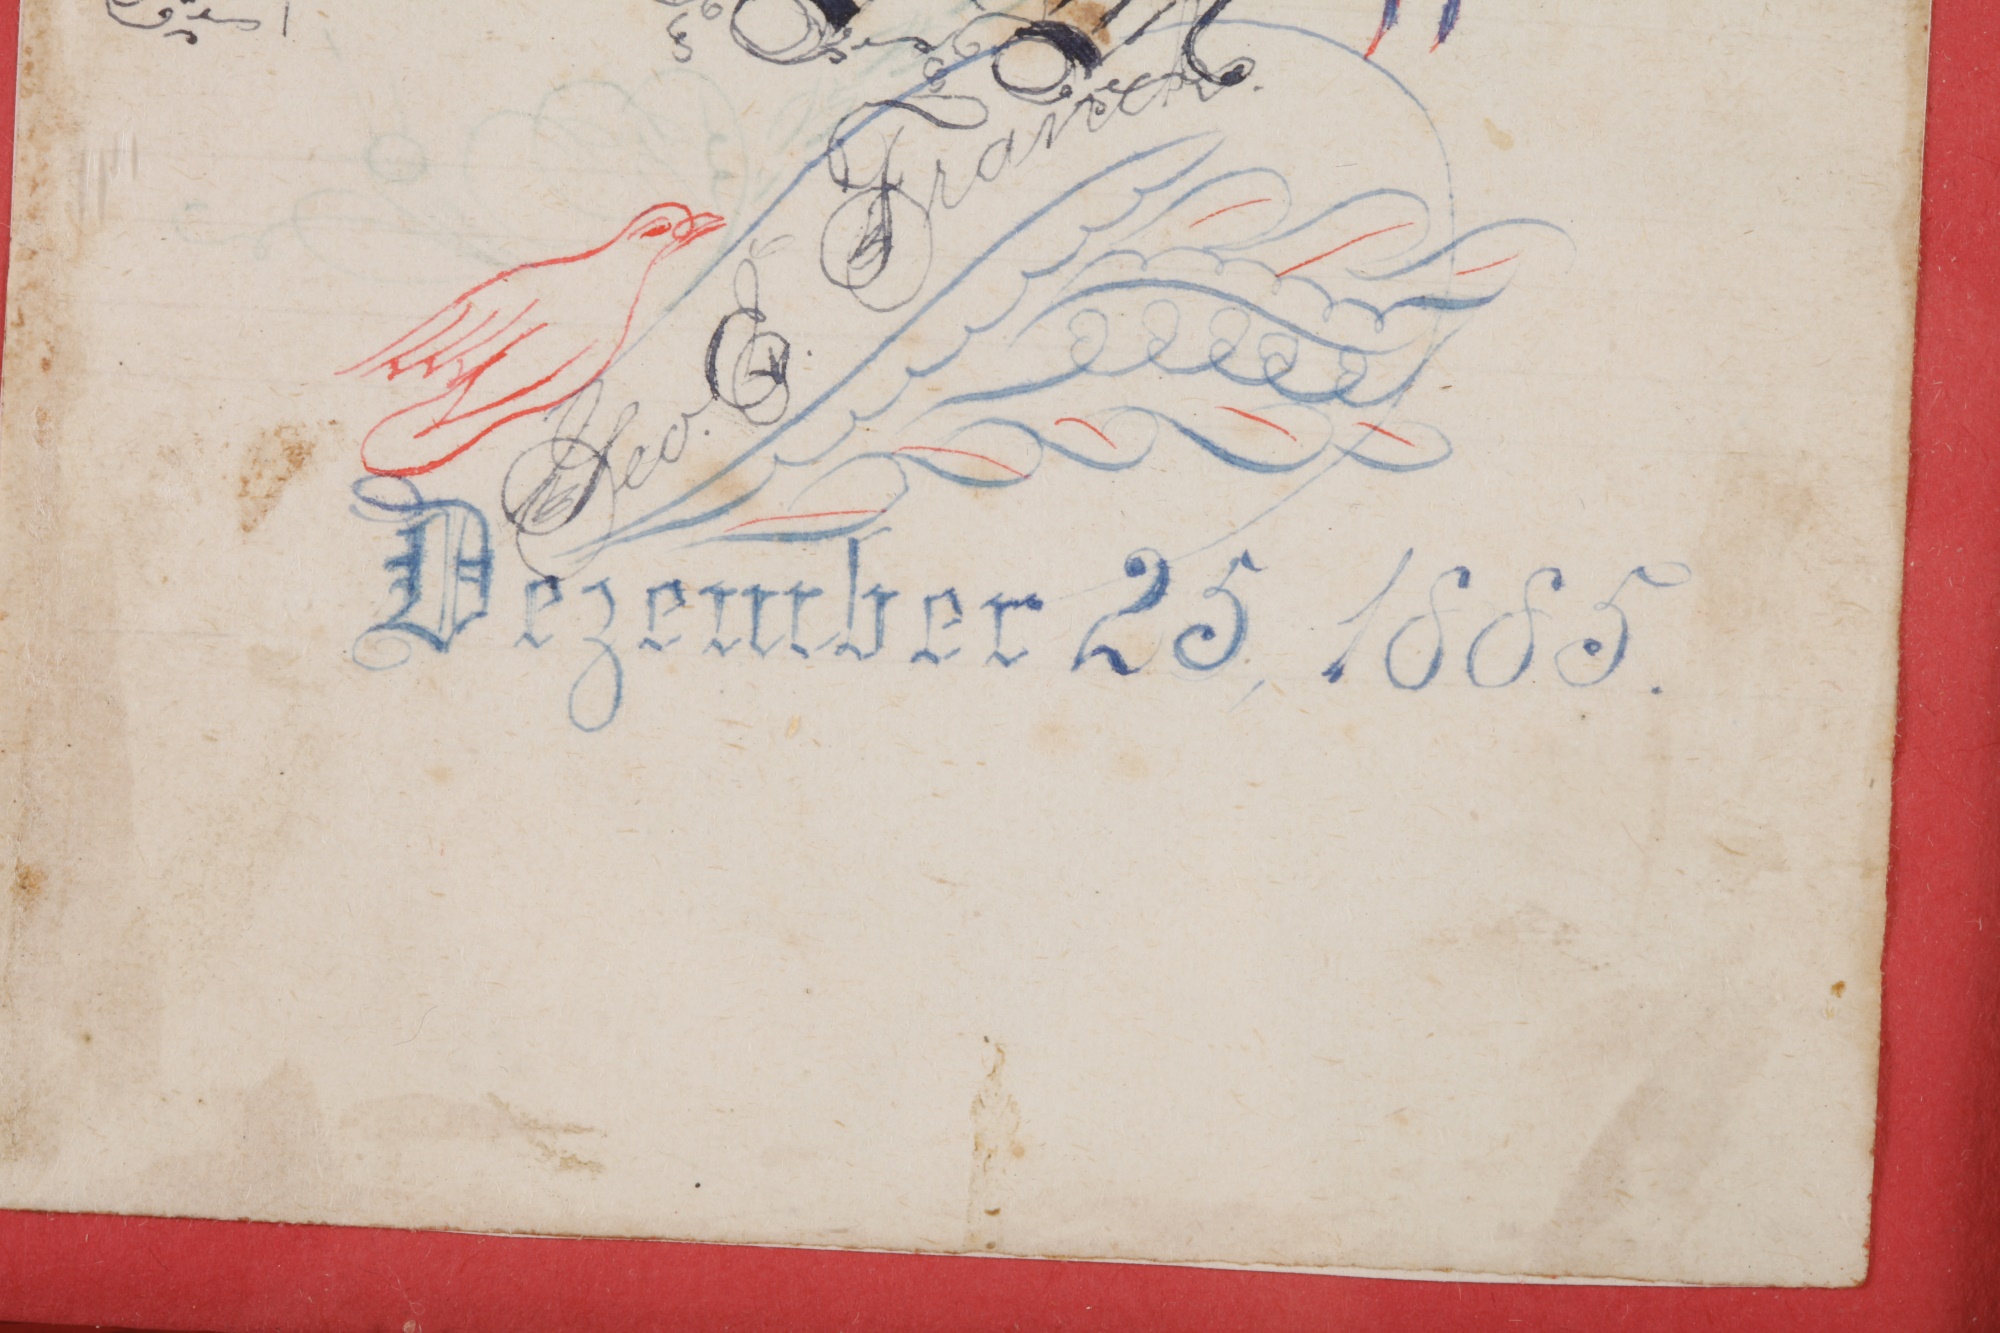 Geo. E.
Dezember 25, 1885.